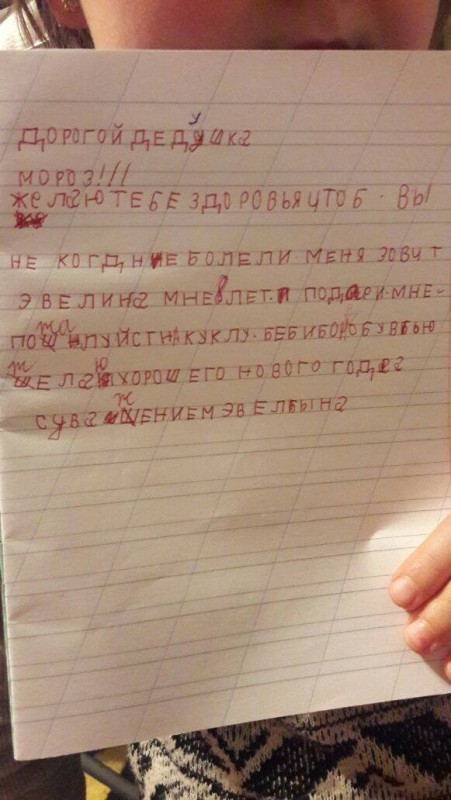 ДОРОГОЙ ДЕДУШКА
МОРОЗ!!!
ЖЕЛАЮ ТЕБЕ ЗДОРОВЬЯ ЧТОБ. ВЫ
НЕ КОГД, НИЕ БОЛЕЛИ МЕНЯ ЗОВУТ
ЭВЕЛИНа МНЕ 8 ЛЕТ. ПОДаРИ. МНЕ-
ПОЖаЛУЙСТа КУКЛУ. БЕБИБОН
ЖЕЛАЮ ХОРОШЕГО НОВОГО ГОДа
СУВаЖЕНИЕМ ЭВЕЛЫНа